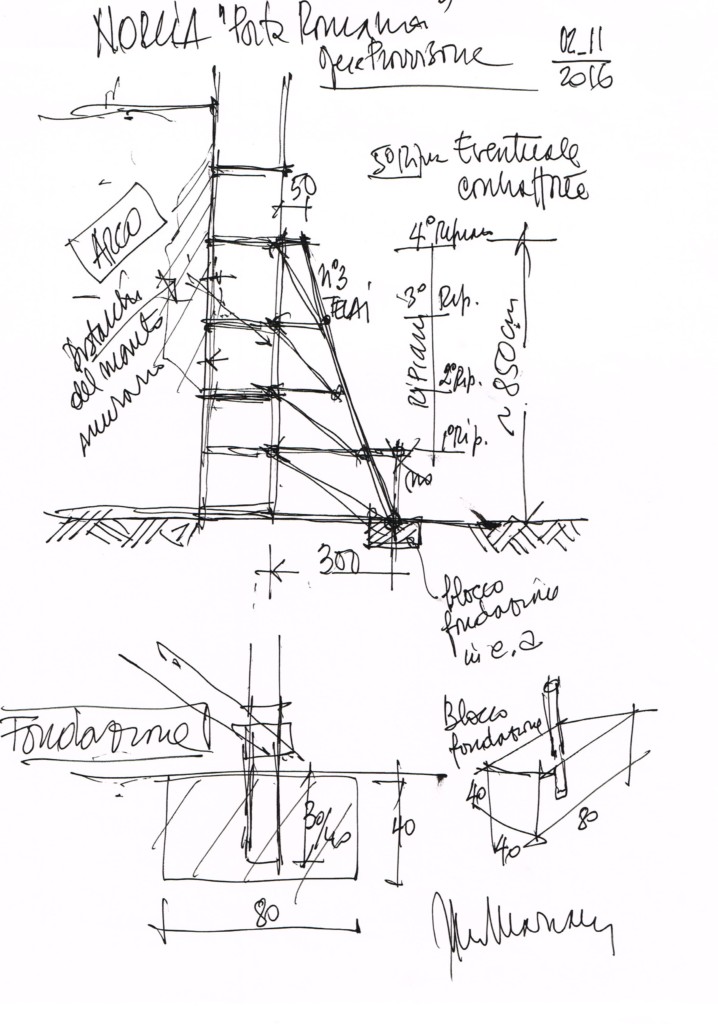 NORCIA "Porta Romana"
Opere Provvisione
02_11
2016
5° Ripiano Eventuale
contraffforte
50
ARCO
4° Ripiano
n°3
TELAI
3° Rip.
Ripiani
~ 850 cm
Distacchi
del manto
murario
2° Rip.
1° Rip.
300
blocco
fondazione
in c.a
Fondazione
Blocco
fondazione
30/40
40
80
40
40
80